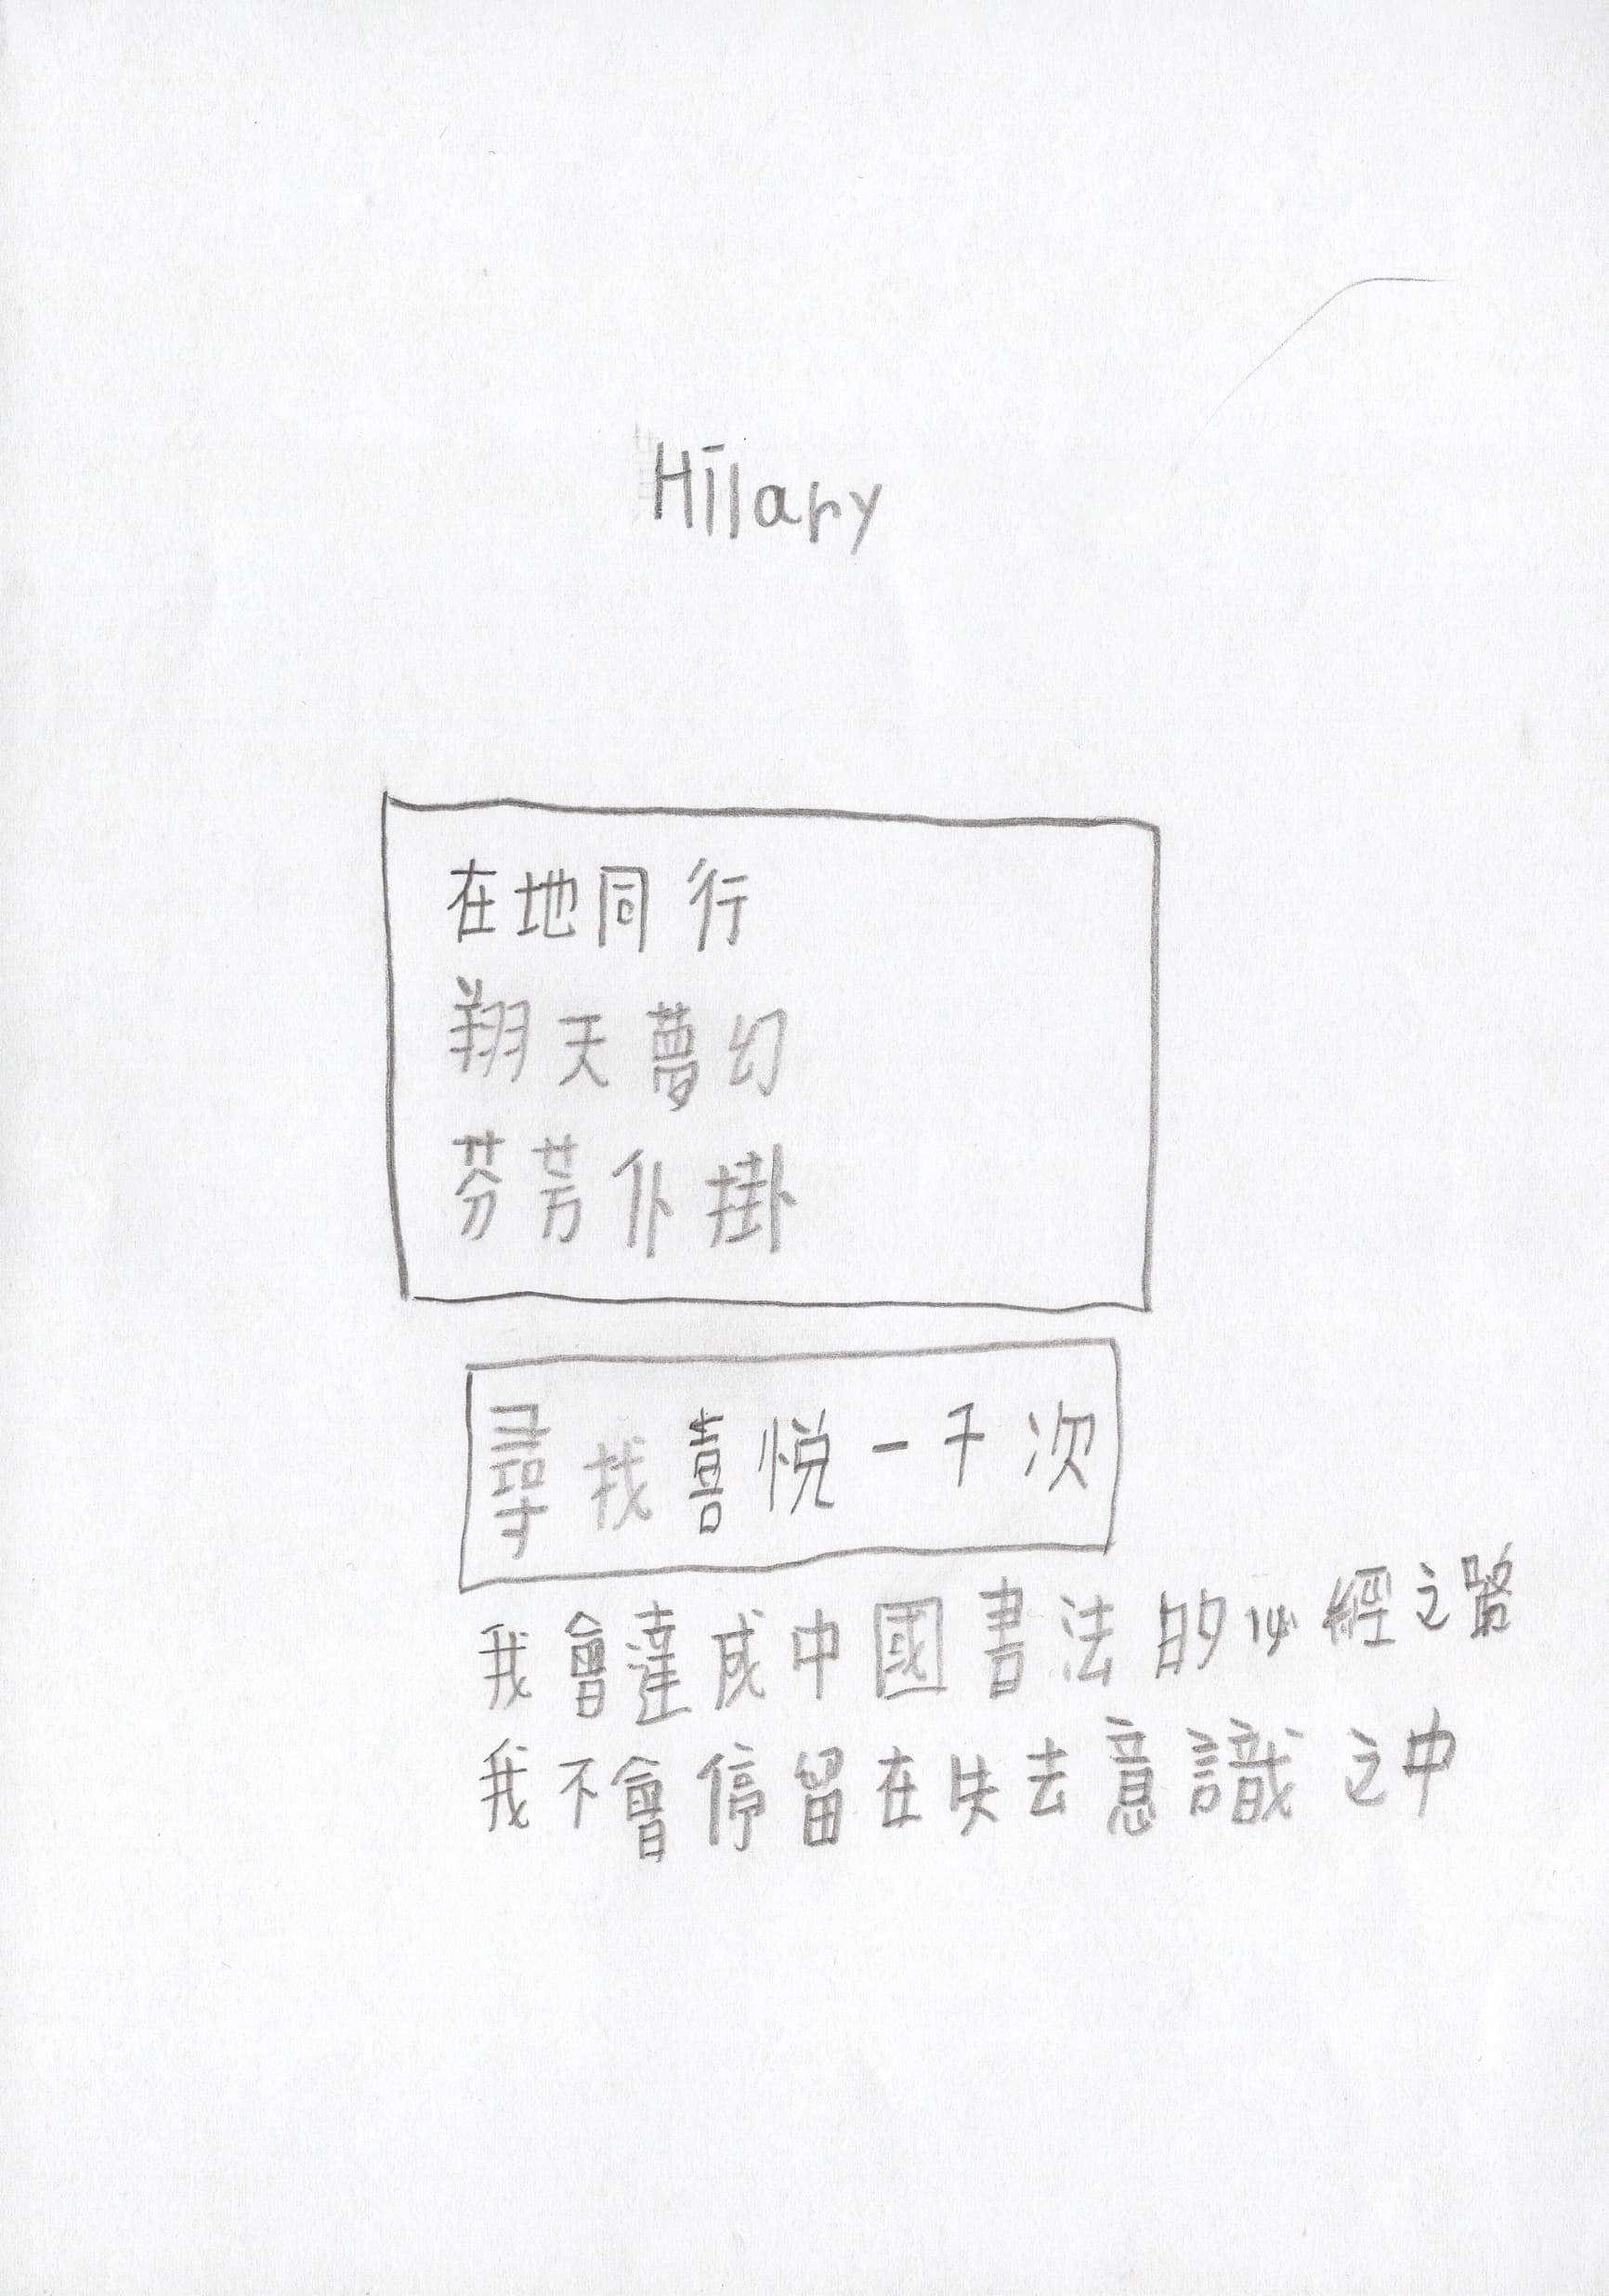 Hilary
在地同行
翔天夢幻
芬芳仆掛
尋找喜悅一千次
我會達成中國書法的必經之路
我不會停留在失去意識之中